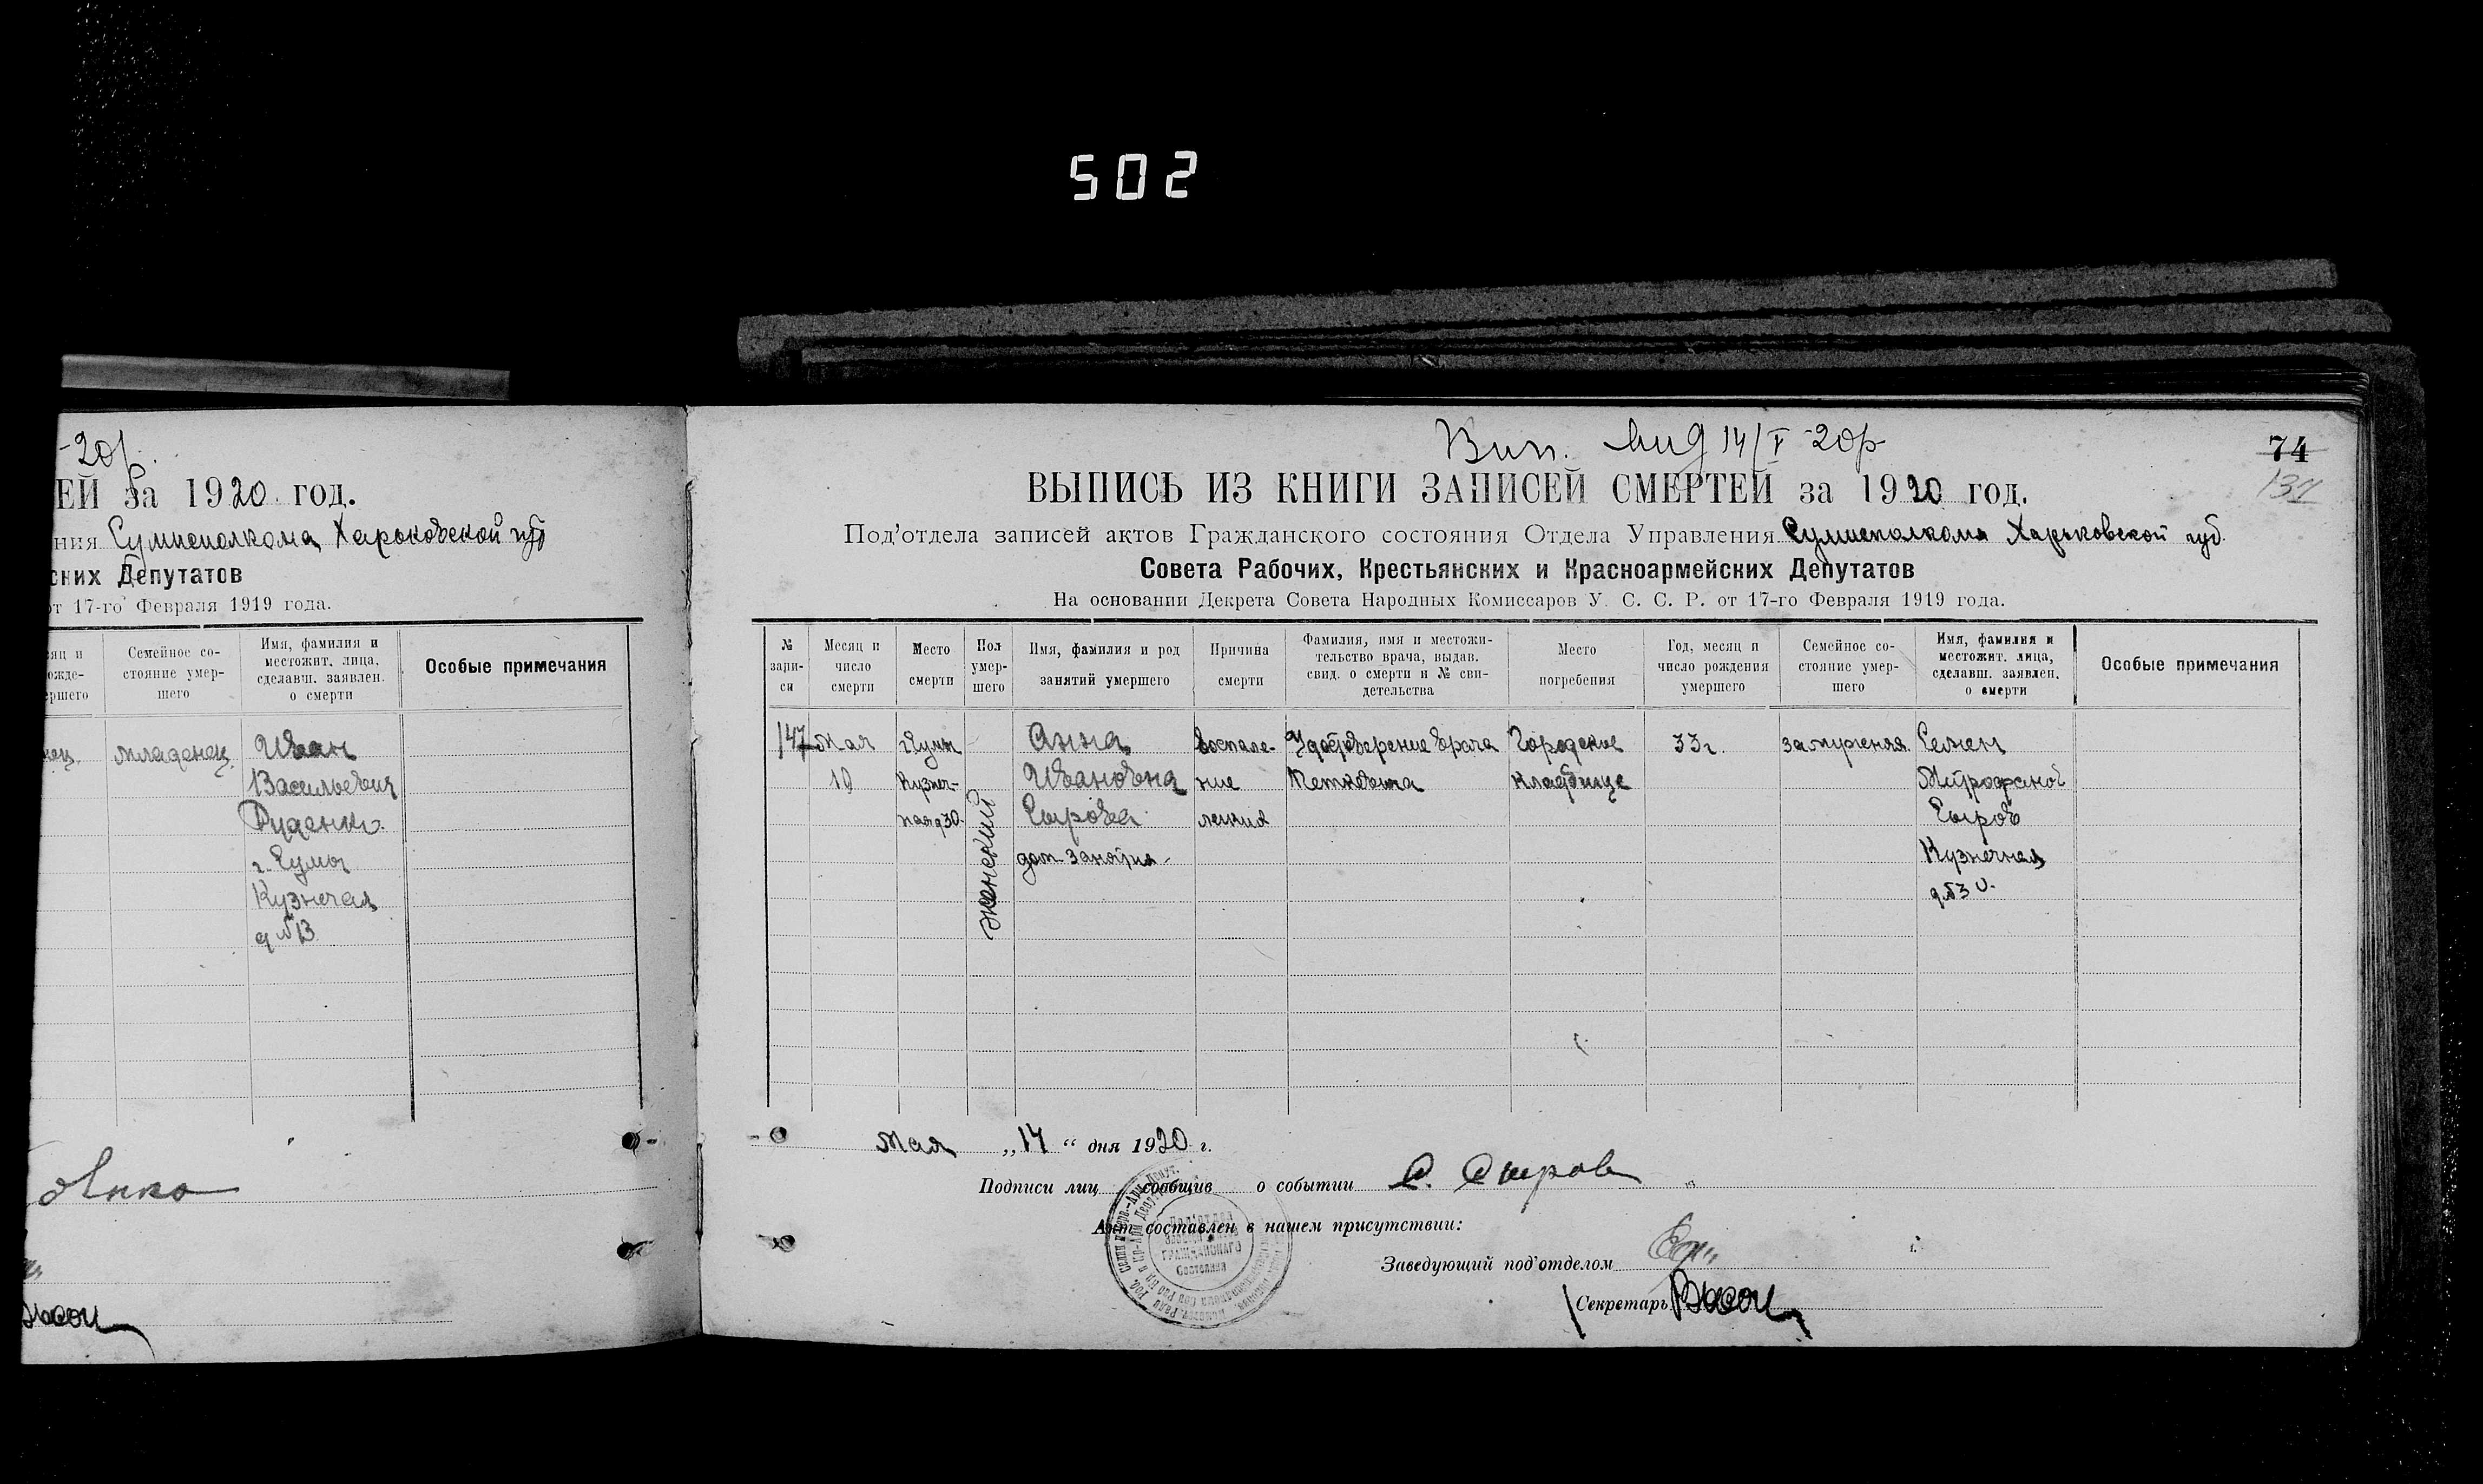 502
-20р.
ЕЙ за 1920 год.
ния Сумисполкома Харьковской губ
ских Депутатов
от 17-го Февраля 1919 года.
яц и
ожде-
ершего
Семейное со-
стояние умер-
шего
Имя, фамилия и
местожит. лица,
сделавш. заявлен.
о смерти
Особые примечания
нец.
младенец.
Иван
Васильевич
Руденко.
г. Сумы
Кузнечая
д №13
Вип. 14/V -20р
74
ВЫПИСЬ ИЗ КНИГИ ЗАПИСЕЙ СМЕРТЕЙ за 1920 год.
Под'отдела записей актов Гражданского состояния Отдела Управления Сумисполкома Харьковской губ.
Совета Рабочих, Крестьянских и Красноармейских Депутатов
На основании Декрета Совета Народных Комиссаров У. С. С. Р. от 17-го Февраля 1919 года.
№
запи-
си
Месяц и
число
смерти
Место
смерти
Пол
умер-
шего
Имя, фамилия и род
занятий умершего
Причина
смерти
Фамилия, имя и местожи-
тельство врача, выдав.
свид. о смерти и № сви-
детельства
Место
погребения
Год, месяц и
число рождения
умершего
Семейное со-
стояние умер-
шего
Имя, фамилия и
местожит. лица,
сделавш. заявлен.
о смерти
Особые примечания
147
Мая
10
г Сумы
Кузнеч-
ная д 30.
женский
Анна
Ивановна
Сырова
дом. занятия
воспале-
ние
легких
Удостоверение врача
Петкевича
Городское
кладбище
33 г.
замужняя
Семен
Митрофанов
Сыров
Кузнечная
д №30.
Мая „14“ дня 1920 г.
Подписи лиц сообщив о событии С. Сыров
Акт составлен в нашем присутствии:
Заведующий под'отделом
Секретарь
Под'отдел
ГРАЖДАНСКАГО
Состояния